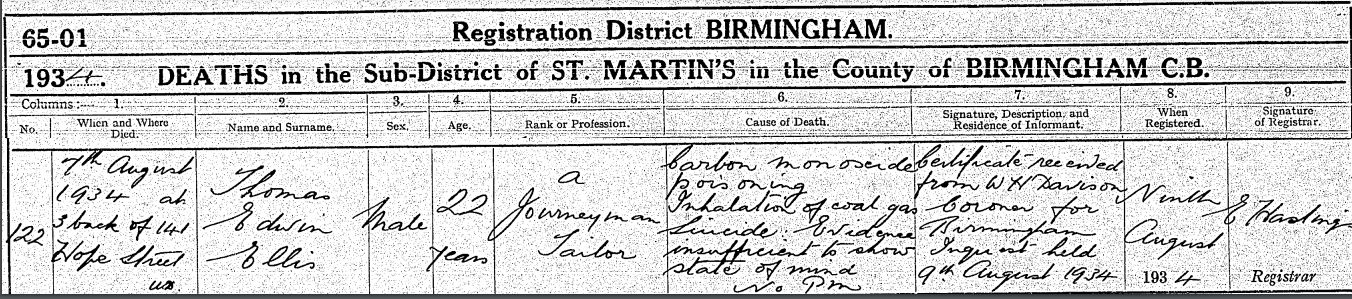 65-01
Registration District BIRMINGHAM.
1934. DEATHS in the Sub-District of ST. MARTIN'S in the County of BIRMINGHAM C.B.
Columns:— 1. 2. 3. 4. 5. 6. 7. 8. 9.
No. When and Where Died. Name and Surname. Sex. Age. Rank or Profession. Cause of Death. Signature, Description, and Residence of Informant. When Registered. Signature of Registrar.
122
7th August
1934 at
3 back of 141
Hope Street
Thomas
Edwin
Ellis
Male
22
years
a
Journeyman
Tailor
Carbon monoxide
poisoning
Inhalation of coal gas
Suicide. Evidence
insufficient to show
state of mind
No Pm
Certificate received
from W H Davison
Coroner for
Birmingham
Inquest held
9th August 1934
Ninth
August
1934
E Hastings
Registrar